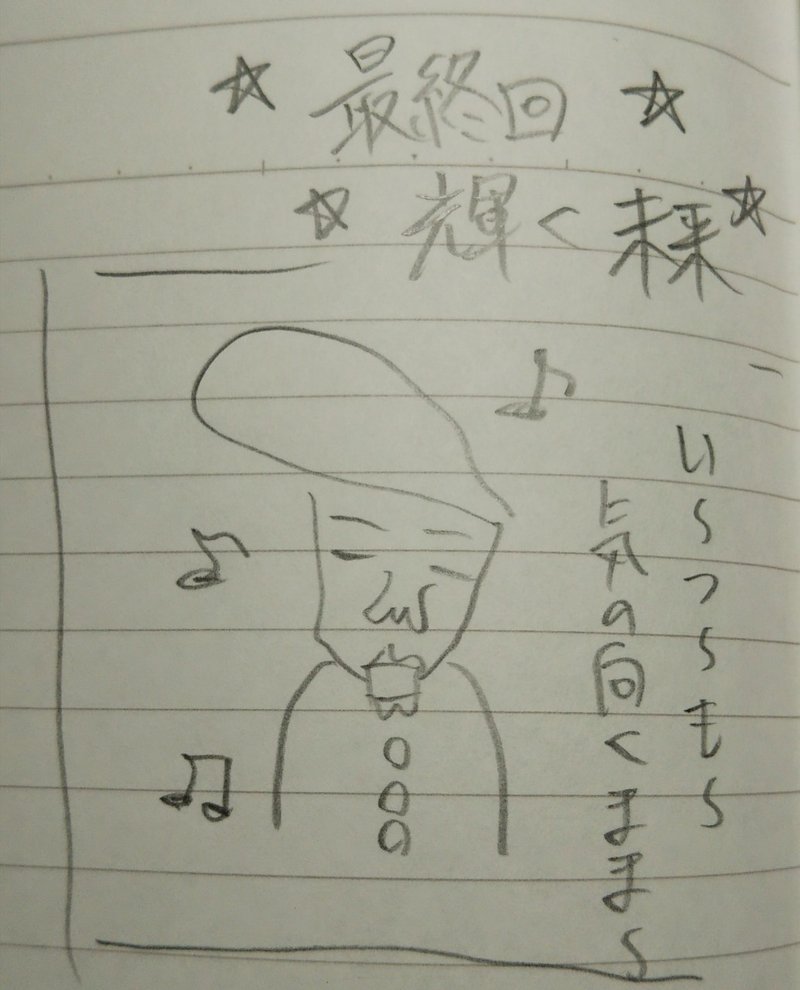 ☆ 最終回 ☆
☆ 輝く未来☆
い〜つ〜も〜
気の向くまま〜